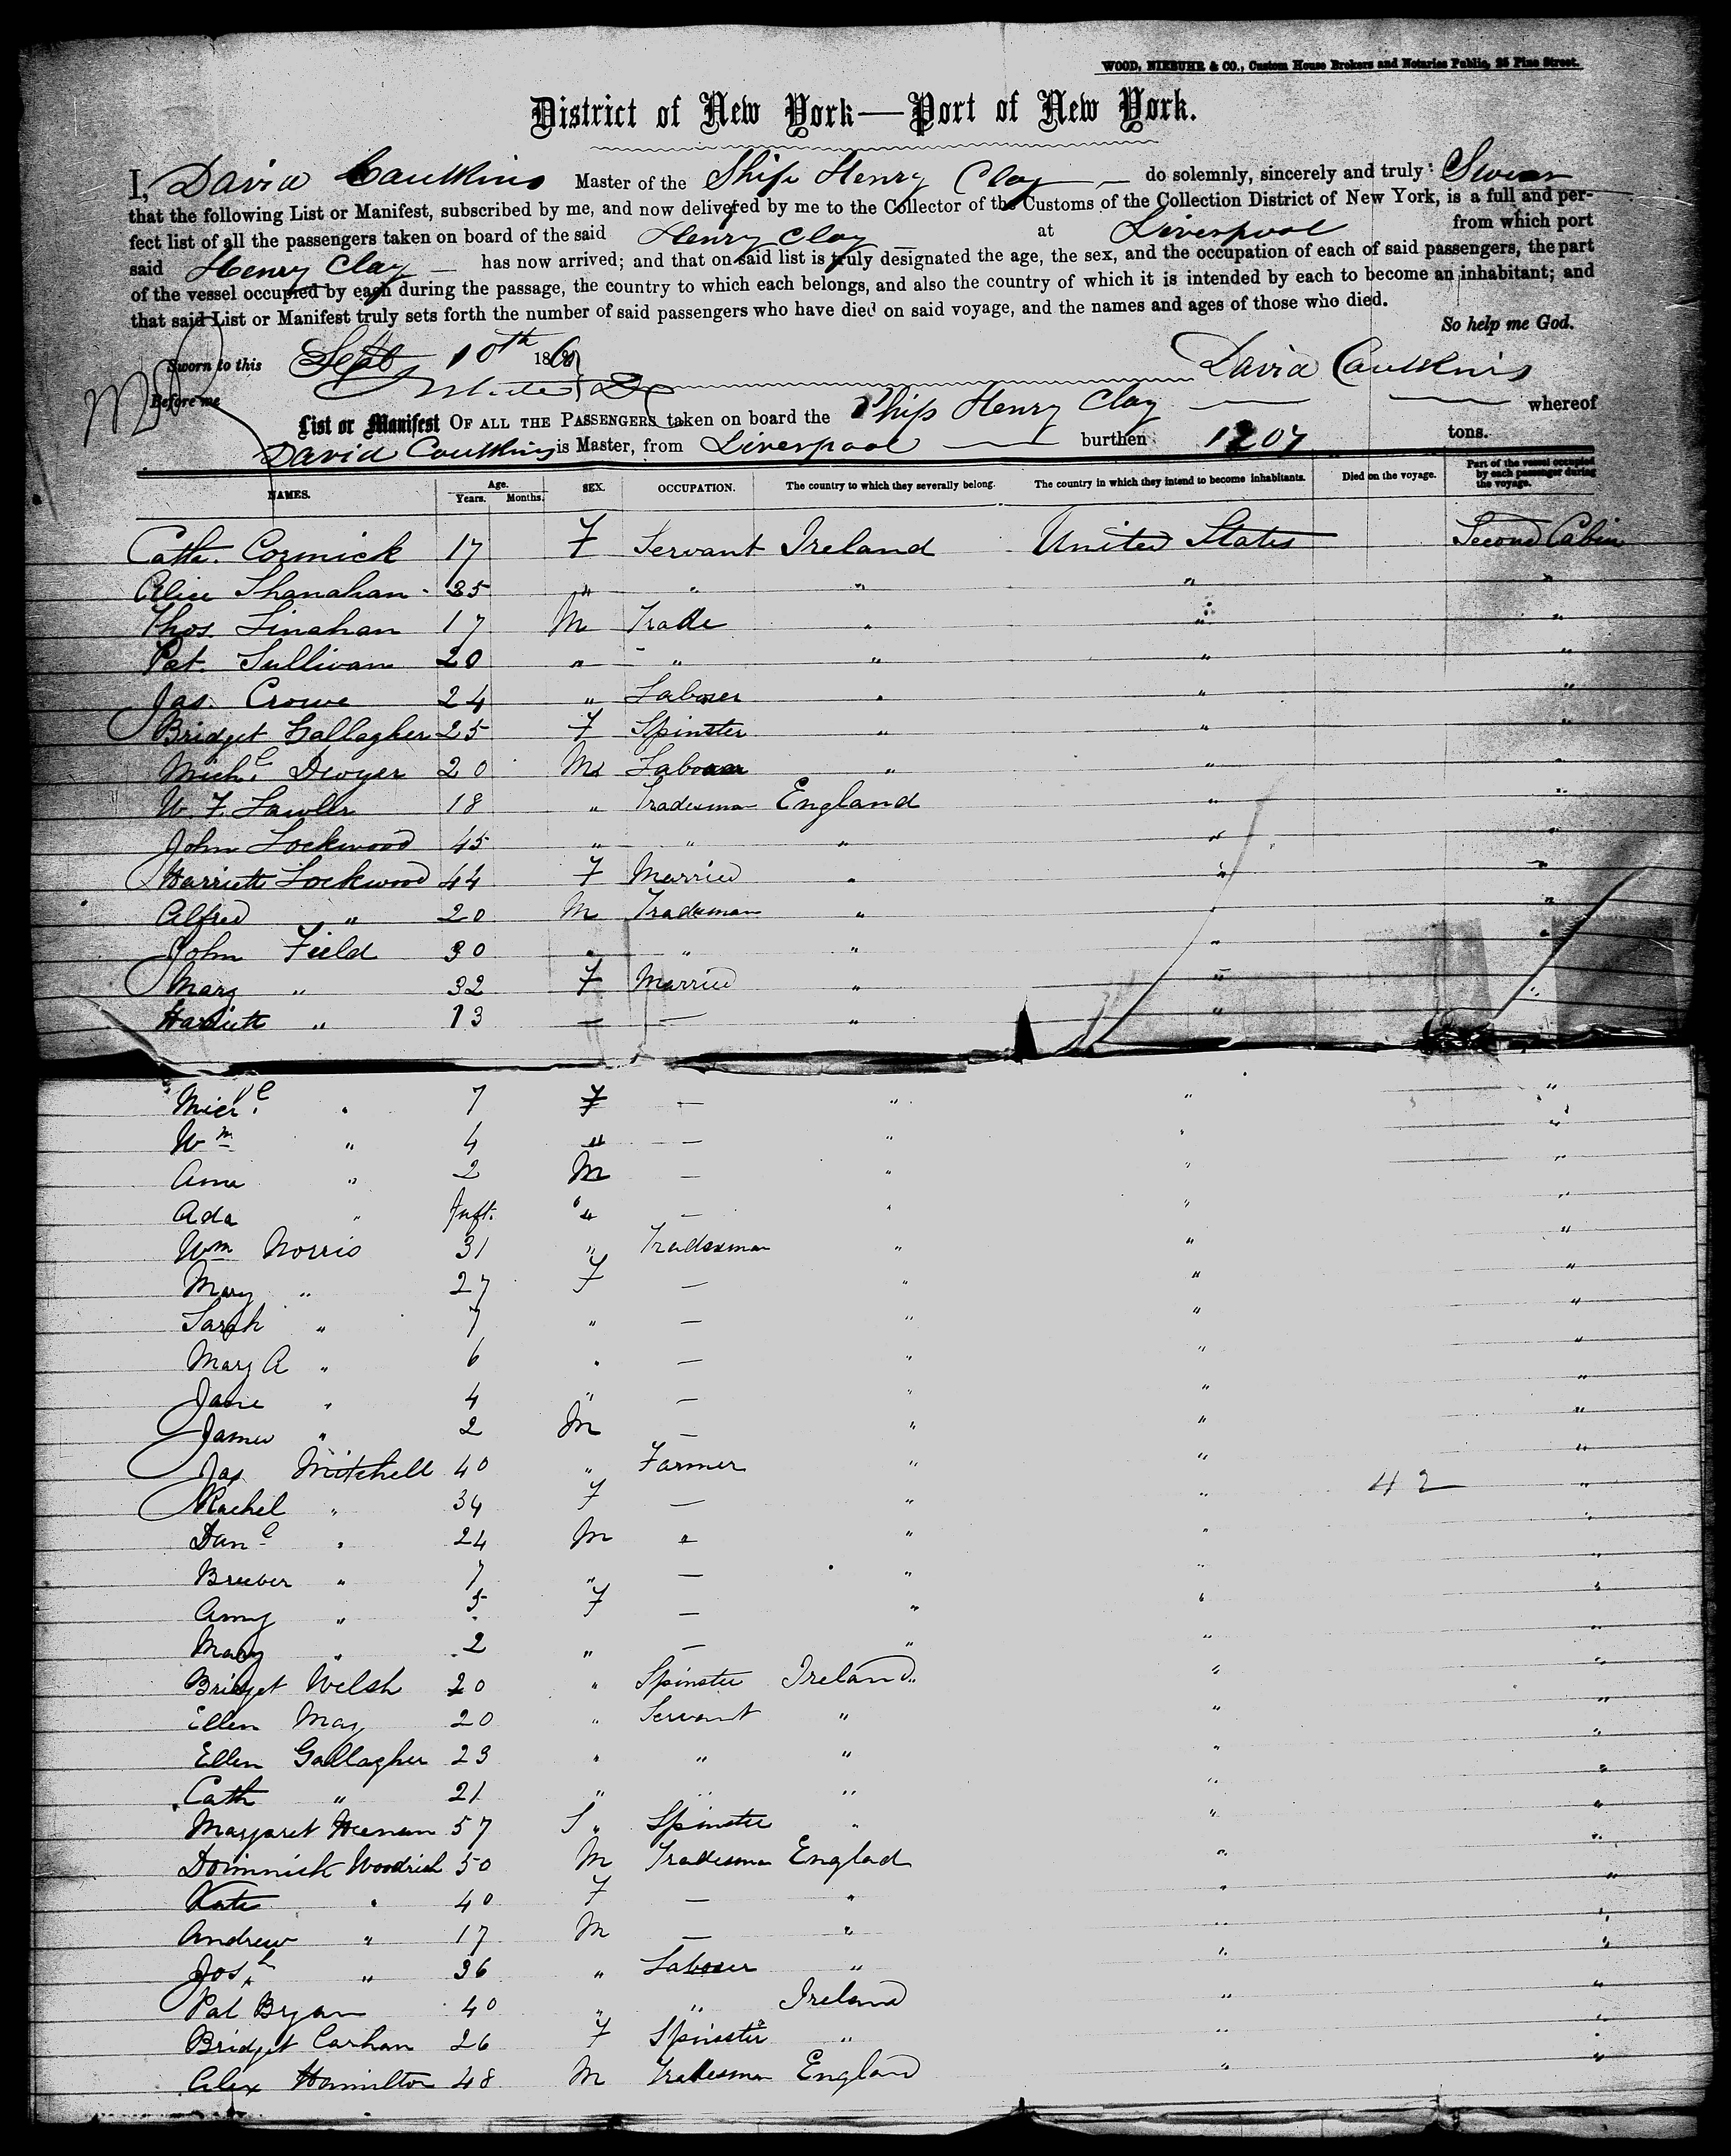 WOOD, NIEBUHR & CO., Custom House Brokers and Notaries Public, 25 Pine Street.
District of New York—Port of New York.
I, David Caulkins Master of the Ship Henry Clay — do solemnly, sincerely and truly Swear
that the following List or Manifest, subscribed by me, and now delivered by me to the Collector of the Customs of the Collection District of New York, is a full and per-
fect list of all the passengers taken on board of the said Henry Clay — at Liverpool from which port
said Henry Clay — has now arrived; and that on said list is truly designated the age, the sex, and the occupation of each of said passengers, the part
of the vessel occupied by each during the passage, the country to which each belongs, and also the country of which it is intended by each to become an inhabitant; and
that said List or Manifest truly sets forth the number of said passengers who have died on said voyage, and the names and ages of those who died.
So help me God.
Sworn to this Sept 10th 1860 David Caulkins
Before me
List or Manifest OF ALL THE PASSENGERS taken on board the Ship Henry Clay — — whereof
David Caulkins is Master, from Liverpool — burthen 1207 tons.
NAMES. Age. Years. Months. SEX. OCCUPATION. The country to which they severally belong. The country in which they intend to become inhabitants. Died on the voyage. Part of the vessel occupied by each passenger during the voyage.
Cathe. Cormick 17 F Servant Ireland United States Second Cabin
Alice Shanahan 25 " " " " "
Thos Linahan 17 M Trade " " "
Pat. Sullivan 20 " " " " "
Jas. Crowe 24 " Laborer " " "
Bridget Gallagher 25 F Spinster " " "
Michl. Dwyer 20 M Laborer " " "
W. F. Lawler 18 " Tradesman England " "
John Lockwood 45 " " " " "
Harriett Lockwood 44 F Married " " "
Alfred " 20 M Tradesman " " "
John Field 30 " " " " "
Mary " 32 F Married " " "
Harriett " 13 — — " "
Michl. " 7 F — " " "
Wm " 4 " — " " "
Ann " 2 M — " " "
Ada " Inft. " — " " "
Wm Norris 31 " Tradesman " " "
Mary " 27 F — " " "
Sarah " 7 " — " " "
Mary A " 6 " — " " "
Jane " 4 " — " " "
James " 2 M — " " "
Jas Mitchell 40 " Farmer " " "
Rachel " 34 F — " " 42 "
Danl " 24 M " " " "
7 " — " " "
Amy " 5 F — " " "
Mary " 2 " — " " "
Bridget Welsh 20 " Spinster Ireland " "
Ellen May 20 " Servant " " "
Ellen Gallagher 23 " " " " "
Cath " 21 " " " " "
Margaret Heenan 57 F " Spinster " " "
Dominick Woodrich 50 M Tradesman Englad " "
Kate " 40 F — " " "
Andrew " 17 M — " " "
Josh " 36 " Laborer " " "
Pat Bryan 40 " " Ireland " "
Bridget Carhan 26 F Spinster " " "
Alex Hamilton 48 M Tradesman England " "